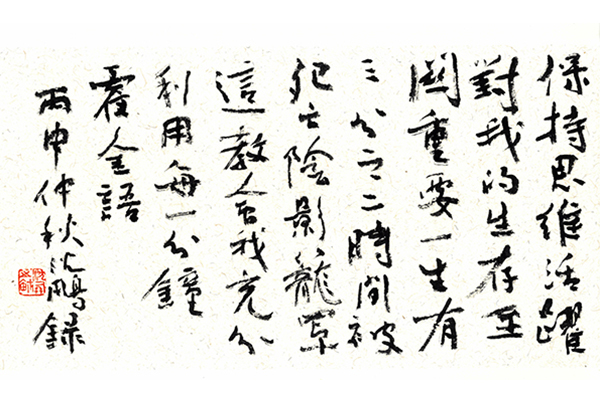 保持思維活躍
對我的生存至
關重要一生有
三分之二時間被
死亡陰影籠罩
這教會我充分
利用每一分鐘
霍金語
丙申仲秋沈鵬録